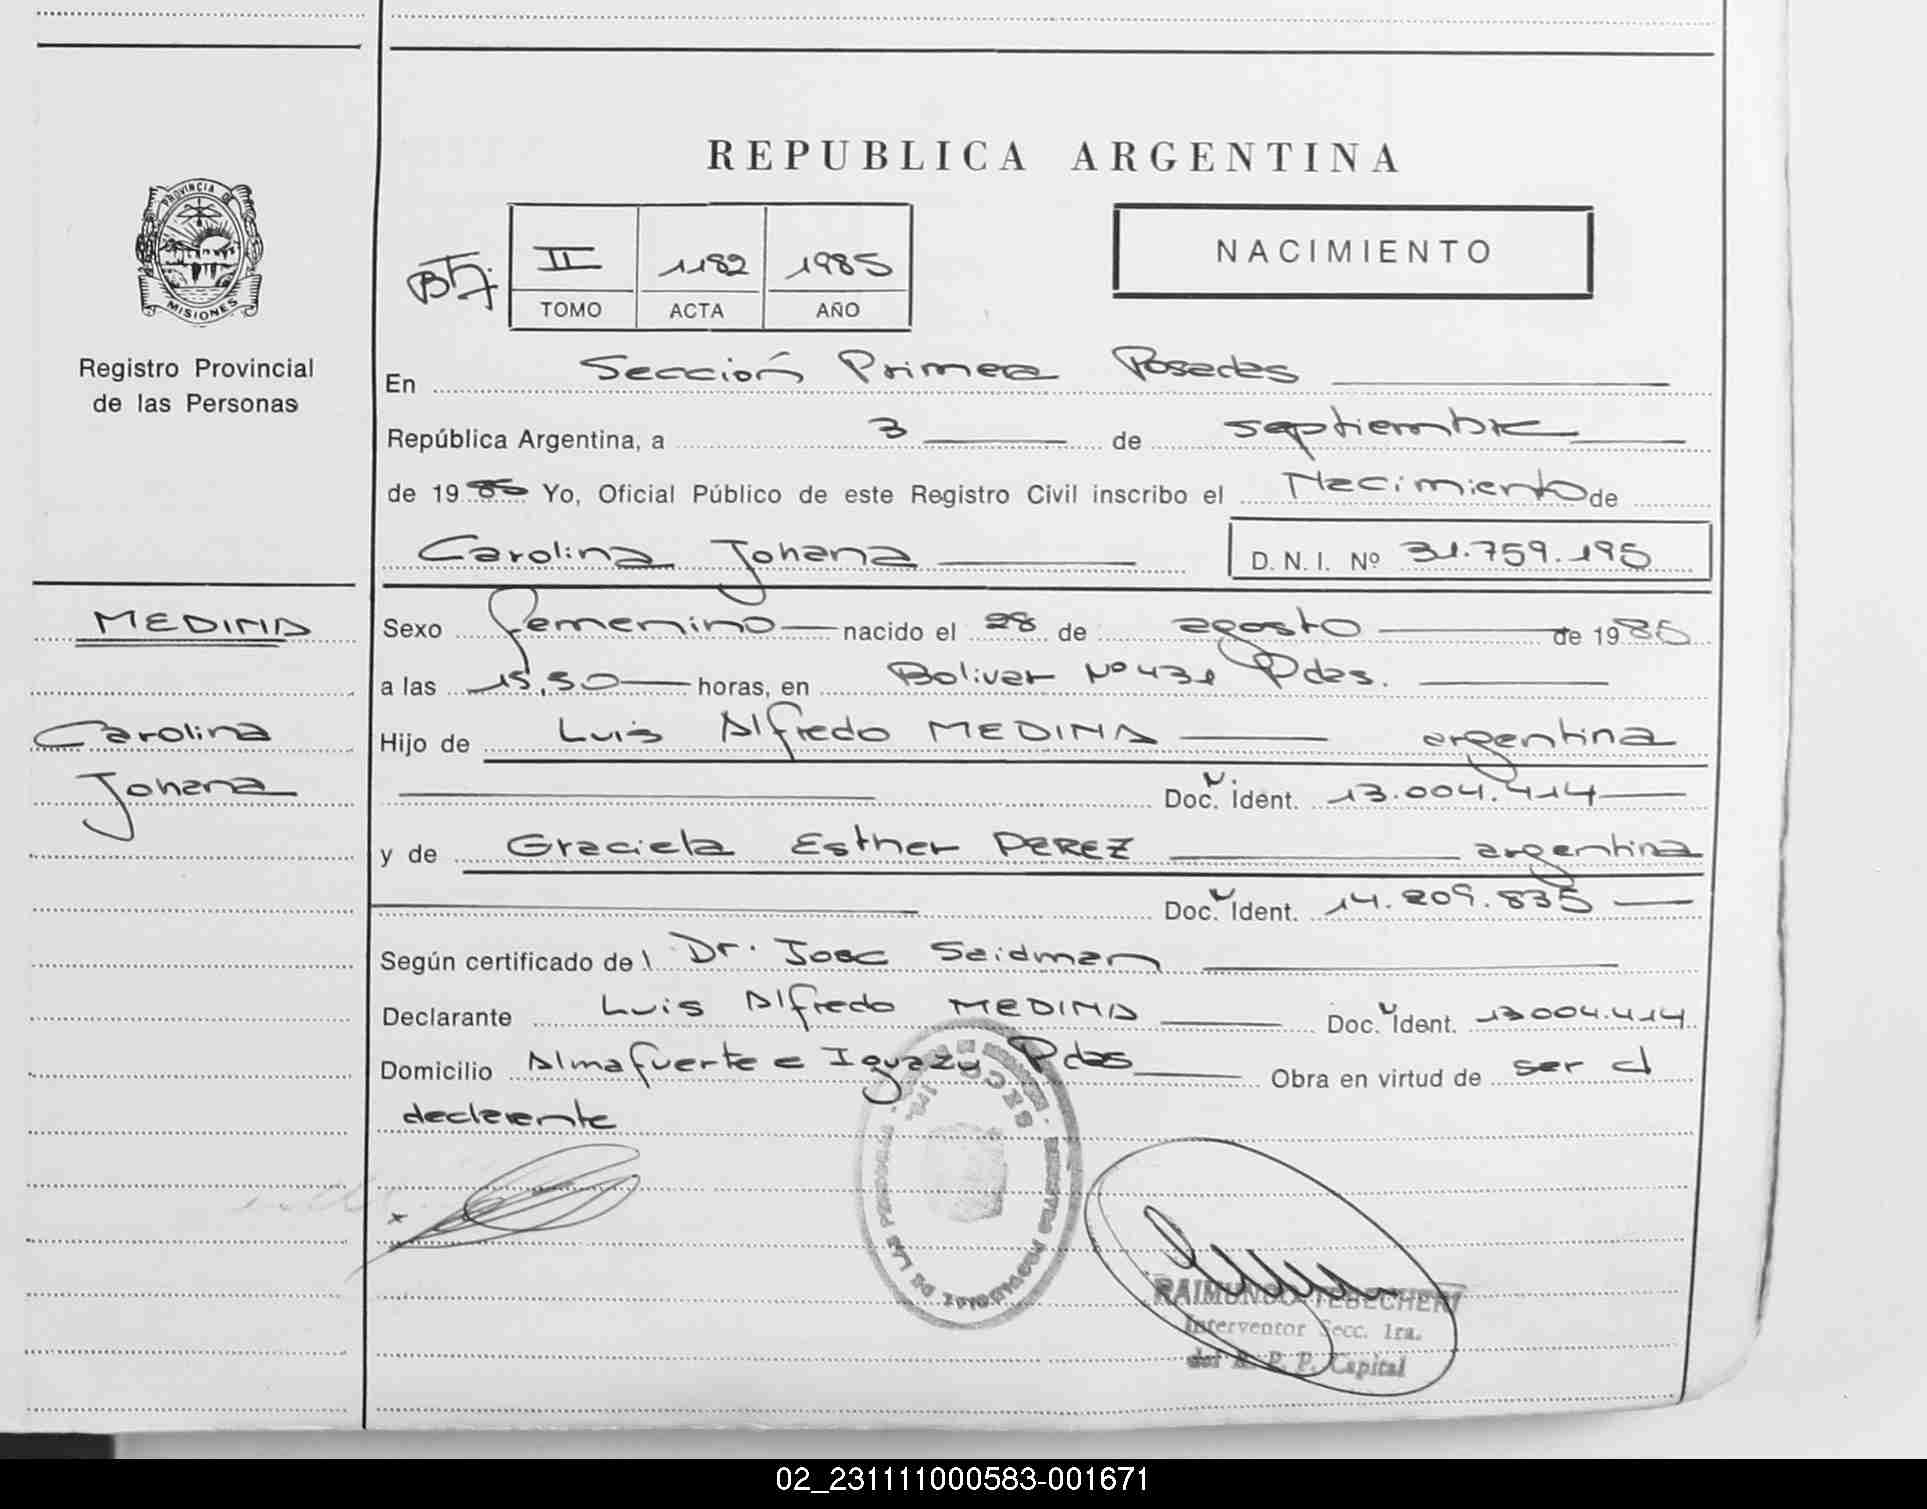 REPUBLICA ARGENTINA
PROVINCIA DE
MISIONES
Registro Provincial
de las Personas
II 1182 1985
TOMO ACTA AÑO
NACIMIENTO
En Sección Primera Posadas
República Argentina, a 3 de septiembre
de 1985 Yo, Oficial Público de este Registro Civil inscribo el Nacimiento de
Carolina Johana D. N. I. Nº 31.759.195
MEDINA
Carolina
Johana
Sexo femenino nacido el 28 de agosto de 1985
a las 15,50 horas, en Bolivar Nº 431 Pdas.
Hijo de Luis Alfredo MEDINA argentina
Doc. Ident. 13.004.414
y de Graciela Esther PEREZ argentina
Doc. Ident. 14.209.835
Según certificado del Dr. Jose Seidman
Declarante Luis Alfredo MEDINA Doc. Ident. 13.004.414
Domicilio Almafuerte e Iguazu Pdas Obra en virtud de ser el
declarante
RAIMUNDO TEBECHERI
Interventor Secc. 1ra.
del R. P. P. Capital
02_231111000583-001671